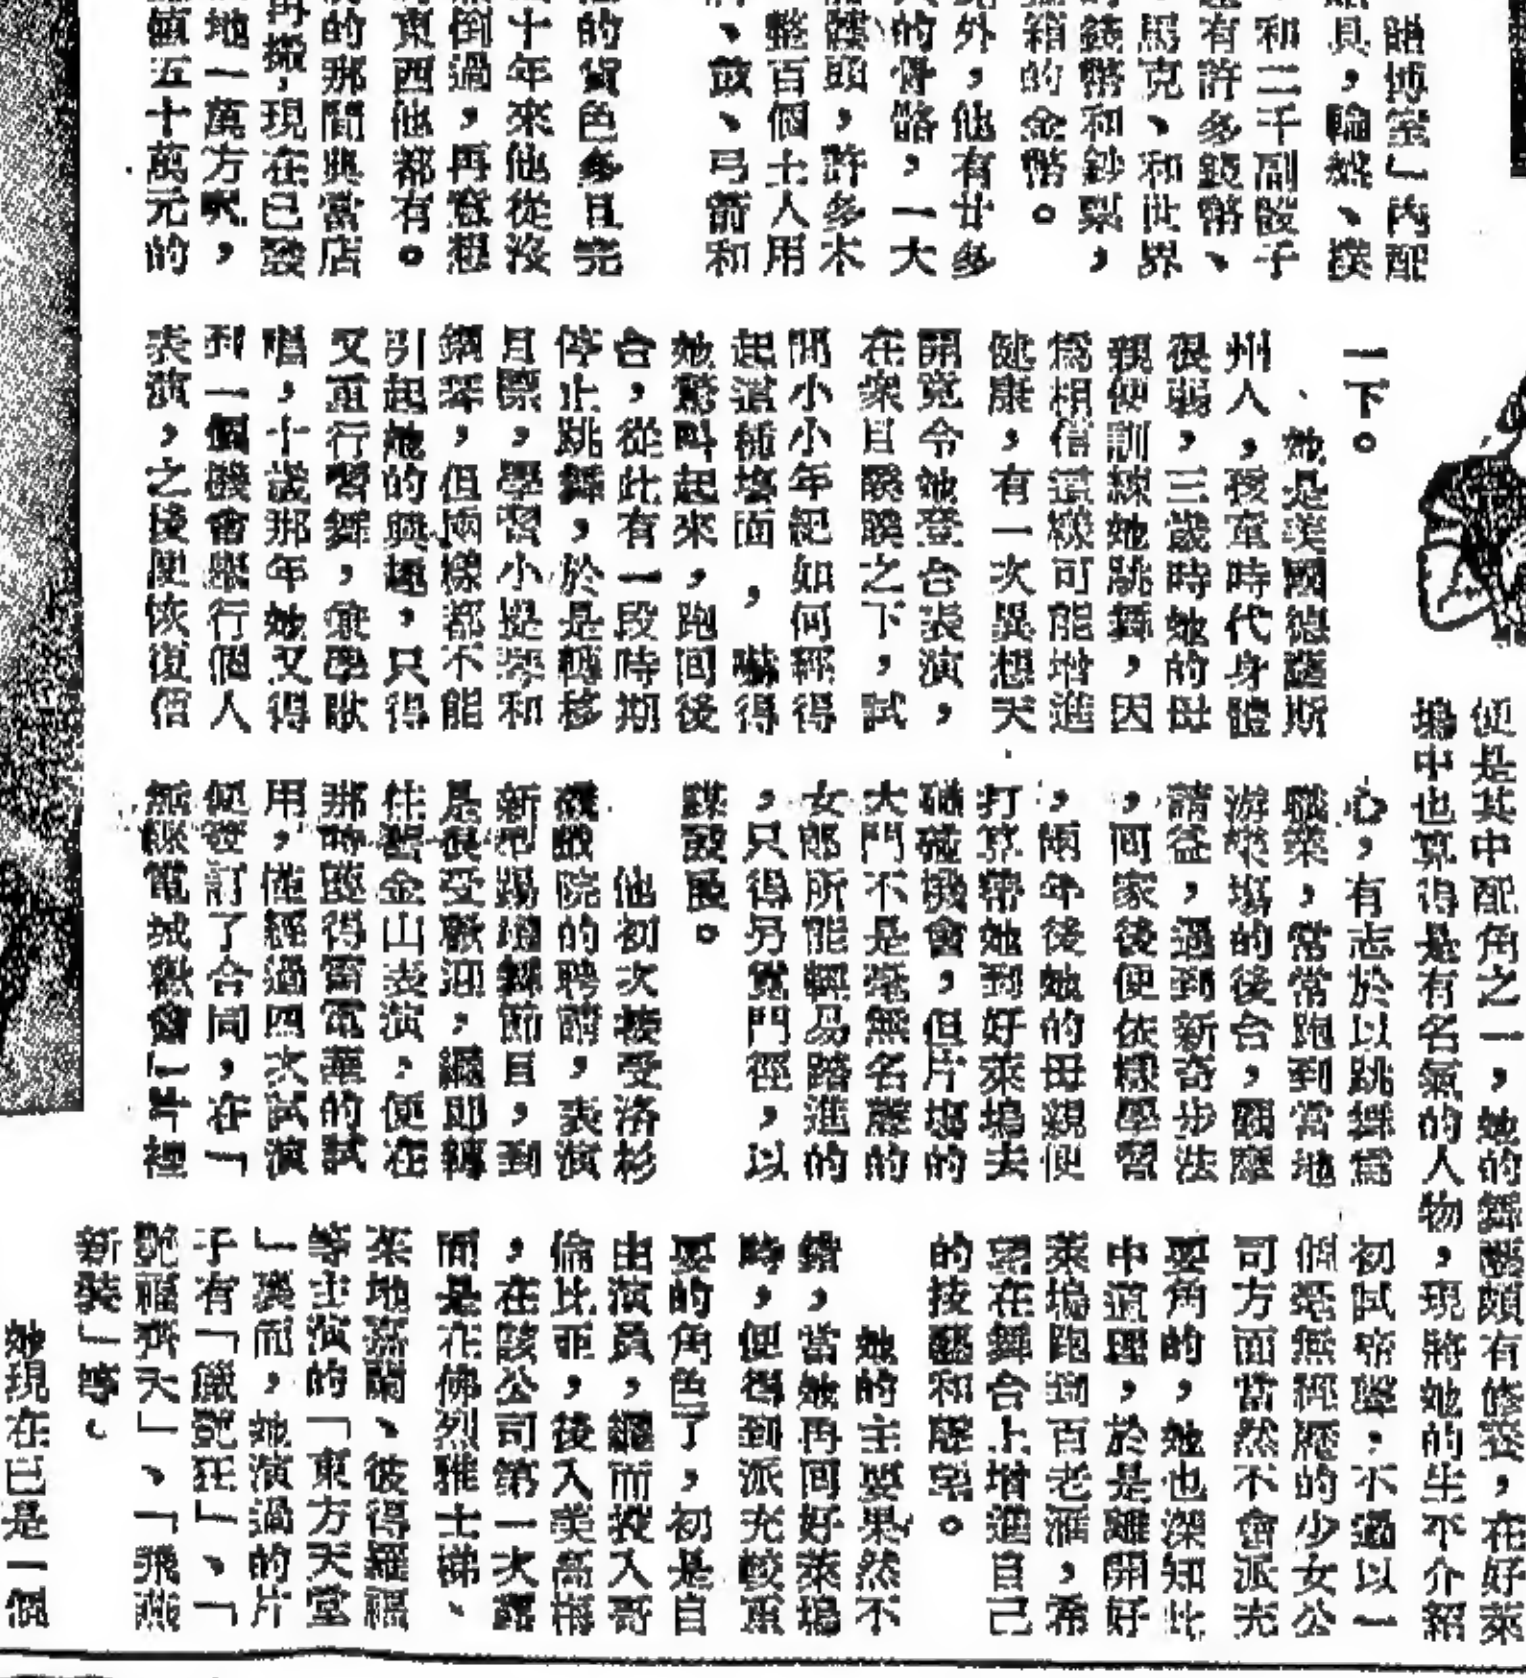 賭博室」內配
賭具，輪盤、撲
和二千副骰子
還有許多銀幣、
馬克、和世界
的錢幣和鈔票，
箱的金幣。
外，他有廿多
的骨骼，一大
髏頭，許多木
整百個土人用
、鼓、弓箭和
的貨色多且完
十年來他從沒
倒過，再意想
東西他都有。
的那間典當店
再搬，現在已發
地一萬方呎，
值五十萬元的
便是其中配角之一，她的舞藝頗有修養，在好萊
塢中也算得是有名氣的人物，現將她的生平介紹
一下。
、她是美國德薩斯
州人，孩童時代身體
很弱，三歲時她的母
親便訓練她跳舞，因
爲相信這樣可能增進
健康，有一次異想天
開竟令她登台表演，
在衆目睽睽之下，試
問小小年紀如何經得
起這種塲面，嚇得
她驚叫起來，跑回後
台，從此有一段時期
停止跳舞，於是轉移
目標，學習小提琴和
鋼琴，但兩樣都不能
引起她的興趣，只得
又重行習舞，兼學歌
唱，十歲那年她又得
到一個機會舉行個人
表演，之後便恢復信
心，有志於以跳舞爲
職業，常常跑到當地
游樂塲的後台，觀摩
請益，遇到新奇步法
，回家後便依樣學習
，兩年後她的母親便
打算帶她到好萊塢去
碰碰機會，但片塲的
大門不是毫無名聲的
女郎所能輕易踏進的
，只得另覓門徑，以
謀發展。
他初次接受洛杉
磯戲院的聘請，表演
新型踢躂舞節目，到
是很受歡迎，繼即轉
往舊金山表演，便在
那時獲得雷電華的試
用，僅經過四次試演
便簽訂了合同，在「
無線電城歡會」片裡
初試啼聲，不過以一
個毫無經歷的少女公
司方面當然不會派充
要角的，她也深知此
中道理，於是離開好
萊塢跑到百老滙，希
望在舞台上增進自己
的技藝和聲望。
她的主要果然不
錯，當她再回好萊塢
時，便得到派充較重
要的角色了，初是自
由演員，繼而投入哥
倫比亞，後入美高梅
，在該公司第一次露
面是在佛烈雅士梯、
茱地嘉蘭、彼得羅福
等主演的「東方天堂
」獲而，她演過的片
子有「儀艷狂」、「
艷福齊天」、「飛燕
新裝」等。
她現在已是一個